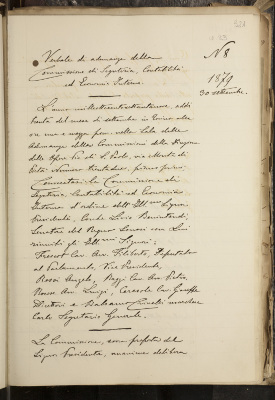 321
Verbale di adunanza della
Commissione di Segreteria, Contabilità
ed Economia Interna.
N 8
1879
30 settembre.
L'anno milleottocentosettantanove, addì
trenta del mese di settembre in Torino, alle
ore una e mezza pom. nella Sala delle
Adunanze della Commissione della Direzione
delle Opere Pie di S. Paolo, via Monte di
Pietà, Numero trentadue, primo piano,
Convocatasi la Commissione di
Segreteria, Contabilità ed Economia
Interna d'ordine dell' Ill.mo Signor
Presidente, Conte Livio Benintendi,
Senatore del Regno, sonosi con Lui
riuniti gli Ill.mi Signori:
Frescot Cav. Avv. Filiberto, Deputato
al Parlamento, Vice Presidente,
Rossi Angelo, Cav. Avv.
Avv. Luigi, Cav. Giuseppe
Direttori e
Carlo Segretario Generale.
La Commissione, sovra proposta del
Signor Presidente, unanime delibera